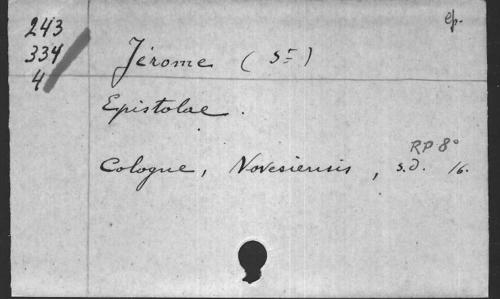 ep.
243
334
4
Jérome (St)
Epistolae.
RP 8°
Cologne, Novesiensis, s.d. 16.